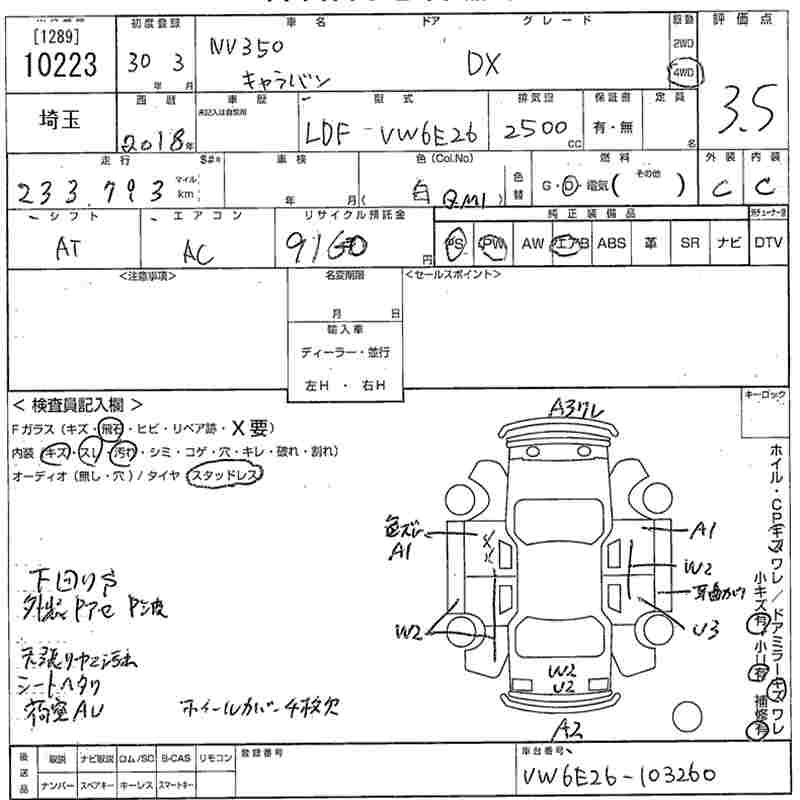 [1289]
10223
初度登録
30 3
年 月
車名 ドア グレード
NV350
キャラバン DX
駆動
2WD
4WD
評価点
3.5
埼玉
西暦
2018年
車歴
未記入は自家用
型式
LDF-VW6E26
排気量
2500
CC
保証書
有・無
定員
名
走行 $#*
233,793
マイル
km
車検
年 月
色(Col.No)
白 (QM1)
色替
燃料
G・D・電気( その他 )
外装
C
内装
C
シフト
AT
エアコン
AC
リサイクル預託金
9160
円
純正装備品
PS PW AW エアB ABS 革 SR ナビ DTV
<注意事項>
名変期限
月 日
輸入車
ディーラー・並行
左H ・ 右H
<セールスポイント>
キーロック
< 検査員記入欄 >
Fガラス(キズ・飛石・ヒビ・リペア跡・X要)
内装(キズ・スレ・汚れ・シミ・コゲ・穴・キレ・破れ・割れ)
オーディオ(無し・穴)/タイヤ(スタッドレス)
A3ワレ
色ズレ
A1
A1
W2
W2
U3
W2
U2
A2
下回りサ
天張りヤニ汚れ
シートヘタリ
荷室AU ホイールカバー4枚欠
ホイル・CP(キズ)ワレ/ドアミラーキズワレ
小キズ有・小U有・補修有
後送品
取説 ナビ取説 ロム/SD B-CAS リモコン
ナンバー スペアキー キーレス スマートキー
登録番号
車台番号
VW6E26-103260